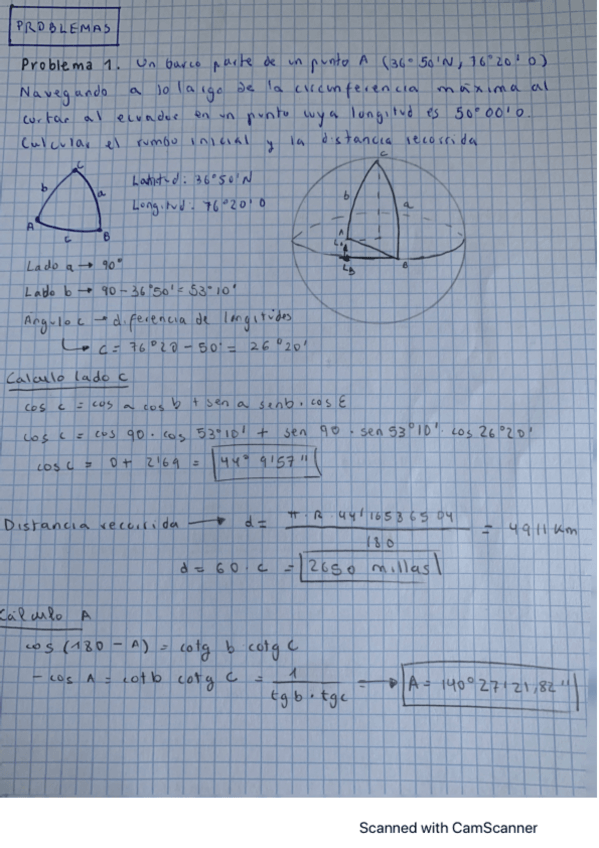 PROBLEMAS
Problema 1. Un barco parte de un punto A (36° 50'N, 76° 20' O)
Navegando a lo largo de la circunferencia máxima al
cortar al ecuador en un punto cuya longitud es 50° 00' O.
Calcular el rumbo inicial y la distancia recorrida
C
b
a
A
c
B
Latitud: 36° 50' N
Longitud: 76° 20' O
C
b
a
A
B
Lado a → 90°
Lado b → 90 - 36° 50' = 53° 10'
Angulo c → diferencia de longitudes
↳ C = 76° 20 - 50° = 26° 20'
Calculo lado c
cos c = cos a cos b + sen a sen b · cos Ĉ
cos c = cos 90 · cos 53° 10' + sen 90 · sen 53° 10' · cos 26° 20'
cos c = 0 + 2'69 = 44° 9' 57"
Distancia recorrida → d = π · R · 44'16536504 / 180 = 4911 Km
d = 60 · c = 2650 millas
Cálculo A
cos (180 - A) = cotg b cotg c
- cos A = cot b cotg c = 1 / tg b · tg c → A = 140° 27' 21,82"
Scanned with CamScanner